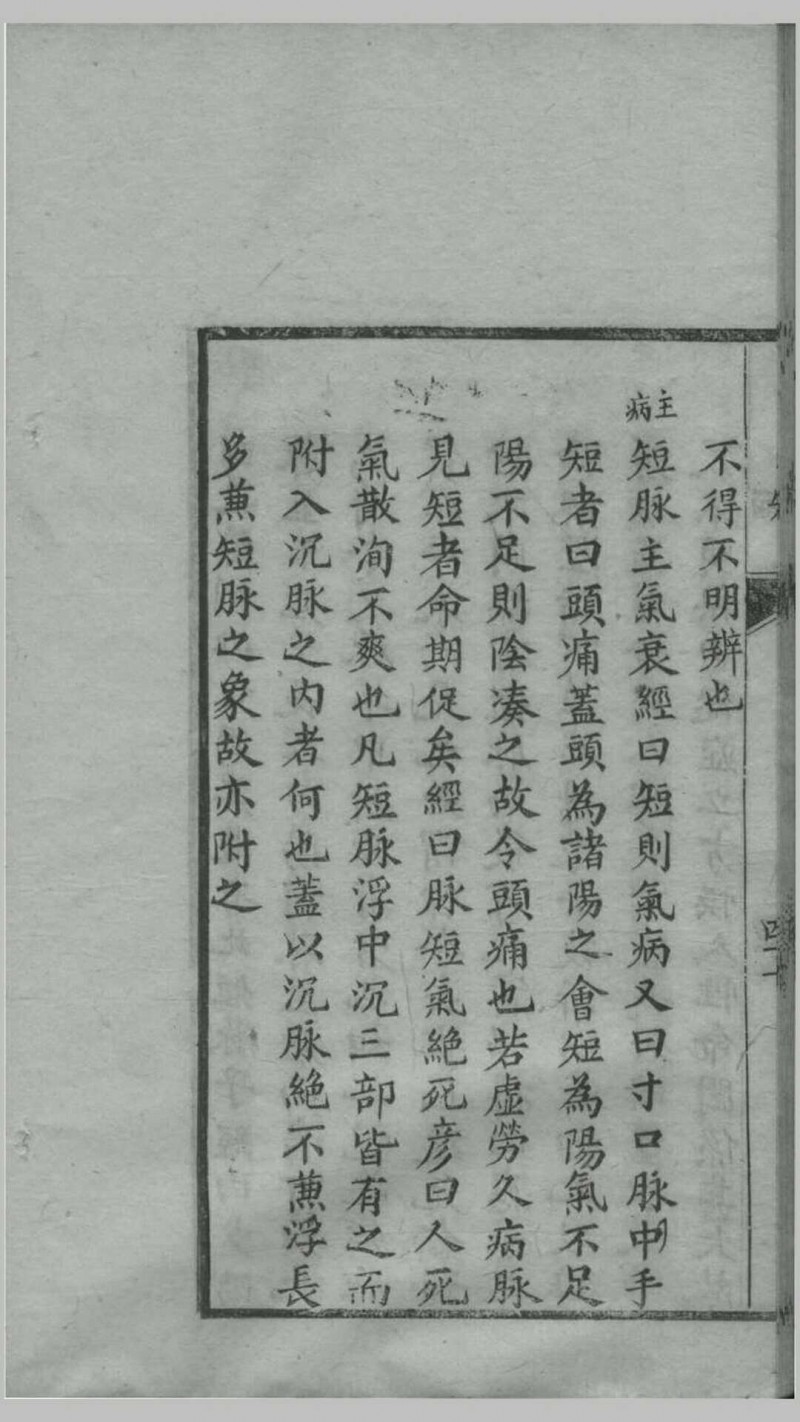 不得不明辨也
主病
短脉主氣衰經曰短則氣病又曰寸口脉中手
短者曰頭痛蓋頭為諸陽之會短為陽氣不足
陽不足則陰凑之故令頭痛也若虛勞久病脉
見短者命期促矣經曰脉短氣絶死彦曰人死
氣散洵不爽也凡短脉浮中沉三部皆有之而
附入沉脉之内者何也蓋以沉脉絶不蕪浮長
多蕪短脉之象故亦附之